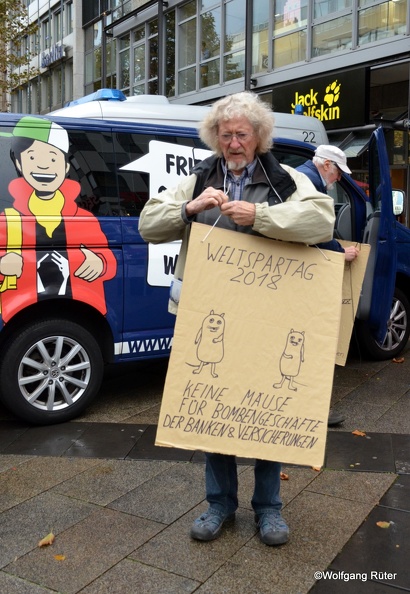 Jack
Wolfskin
22
FRI
WELTSPARTAG
2018
KEINE MÄUSE
FÜR BOMBENGESCHÄFTE
DER BANKEN & VERSICHERUNGEN
www.
©Wolfgang Rüter